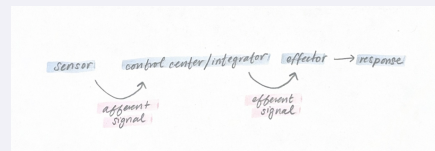 sensor control center/integrator effector → response
afferent efferent
signal signal